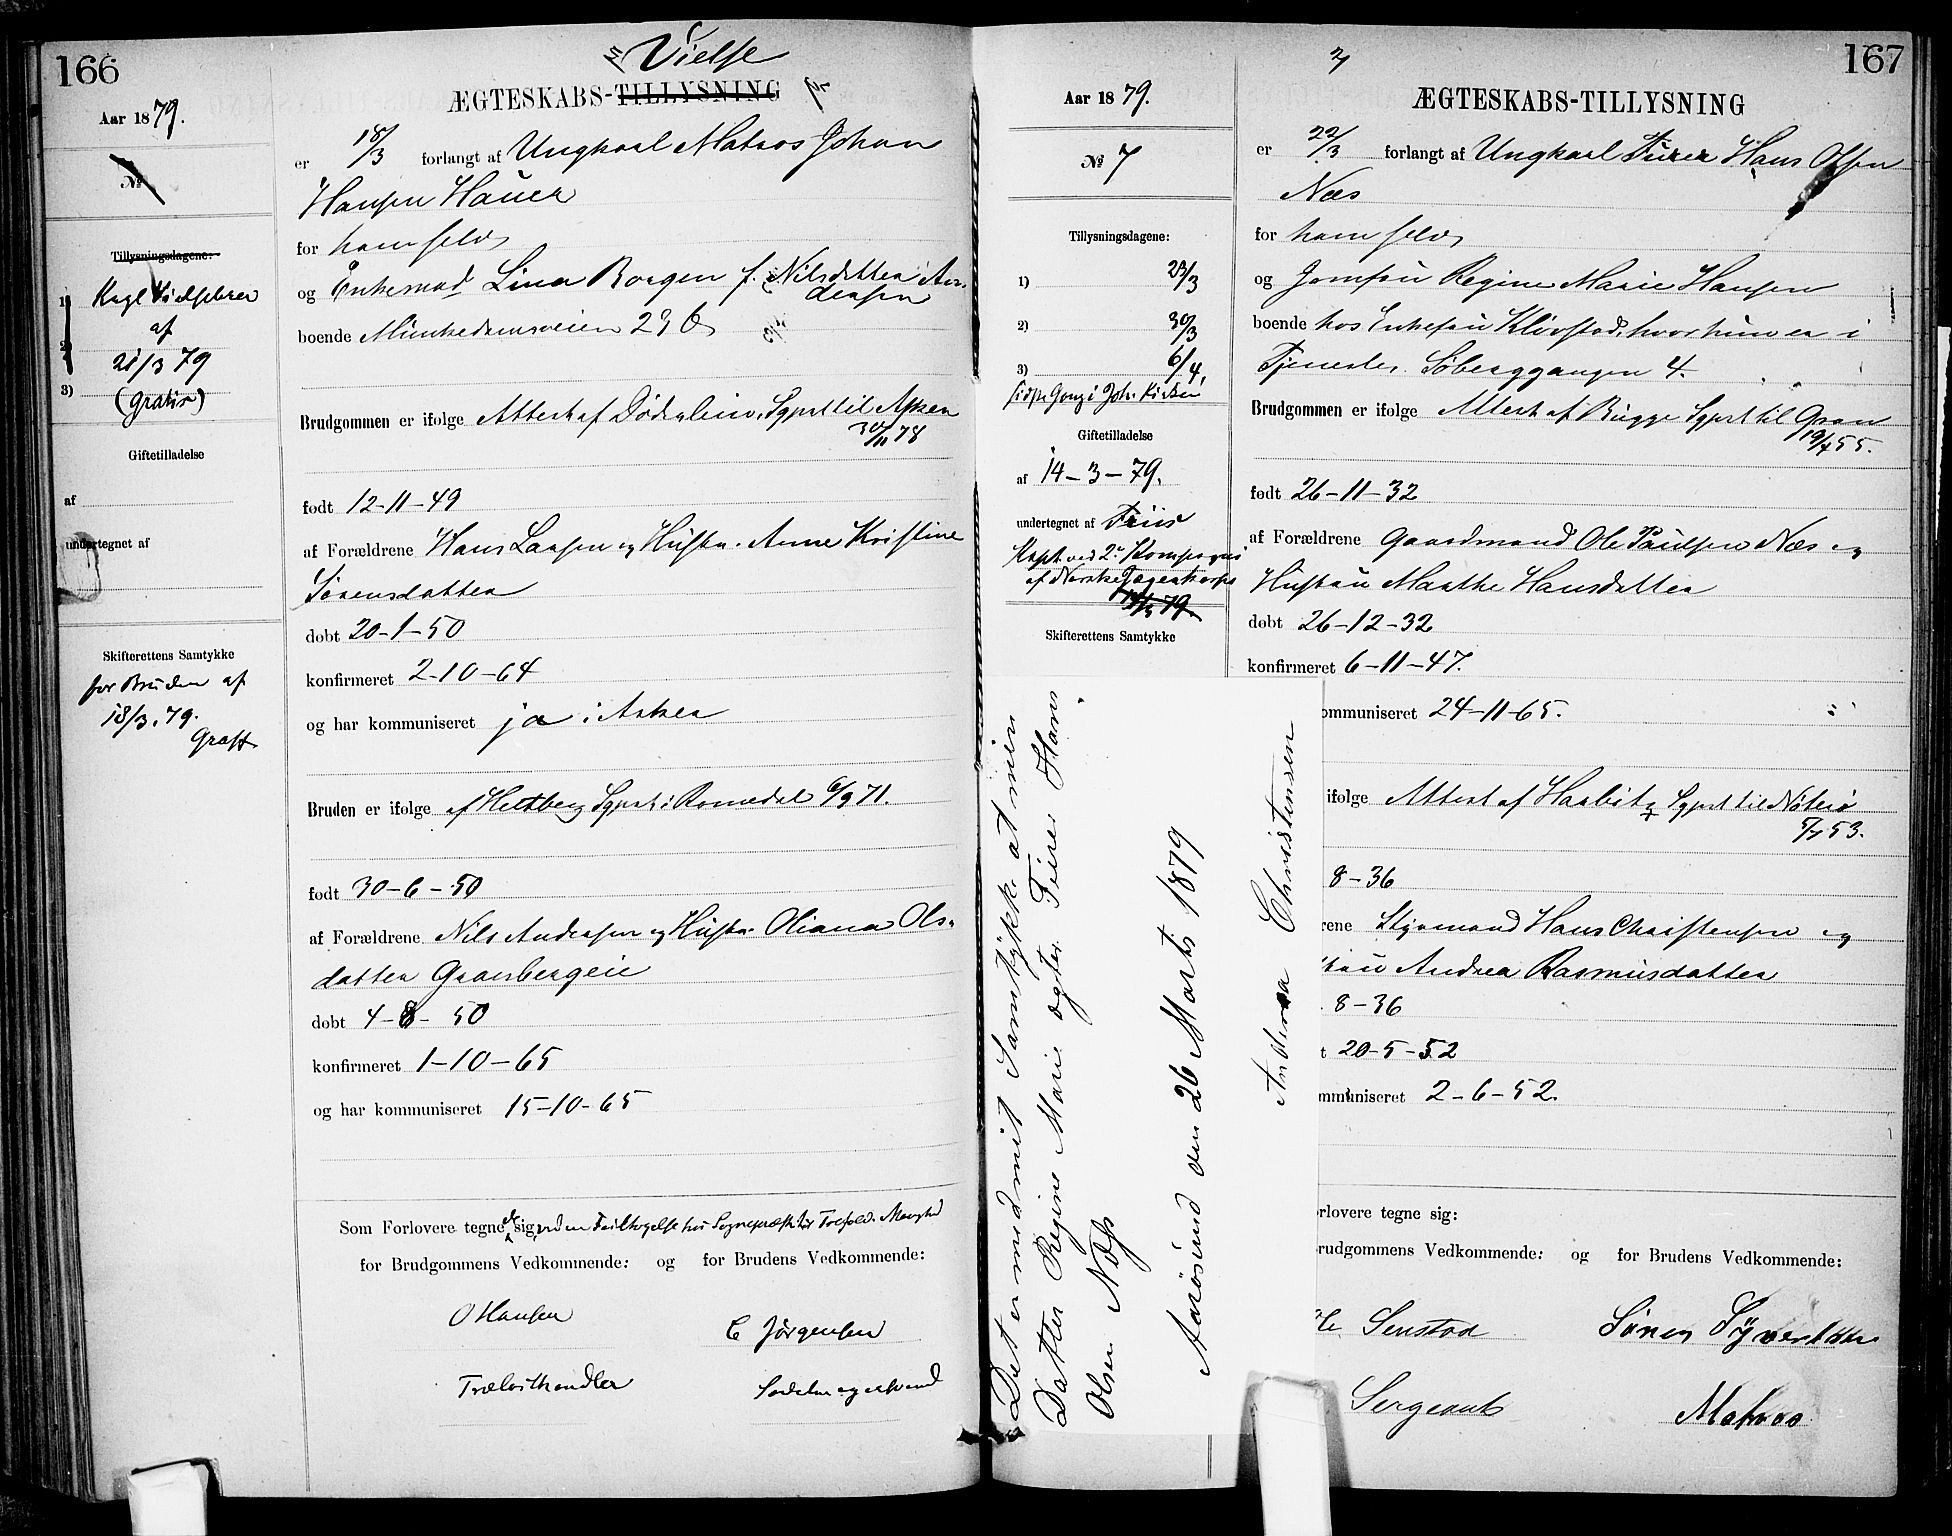 166
Aar 1879.
No
Tillysningsdagene:
1)
Kgl Vielsebrev
af
2)
21/3 79
3) (gratis)
Giftetilladelse
af
undertegnet af
Skifterettens Samtykke
for Bruden af
18/3. 79.
Vielse
ÆGTESKABS-TILLYSNING
er 18/3 forlangt af Ungkarl Matros Johan
Hansen Hauer
for ham selv
og Enkemad Lina Borgen f. Nilsdatter
boende Munkedamsveien 29
Brudgommen er ifølge Attest af Døderlein, Sgprst til Asker
30/11 78
født 12-11-49
af Forældrene Hans Larsen og Hustru Anne Kristine
Sørensdatter
døbt 20-1-50
konfirmeret 2-10-64
og har kommuniseret ja i Asker
Bruden er ifølge af Heltberg Sgprst i Romedal 6/9 71.
født 30-6-50
af Forældrene Nils Andersen og Hustru Oliana Ols-
datter Graasbergeie
døbt 4-8-50
konfirmeret 1-10-65
og har kommuniseret 15-10-65
Som Forlovere tegnede sig
for Brudgommens Vedkommende: og for Brudens Vedkommende:
O Hansen
C Jørgensen
Trælasthandler
167
Aar 1879.
No 7
Tillysningsdagene:
1) 23/3
2) 30/3
3) 6/4
sidste Gang i Joh. Kirken
Giftetilladelse
af 14-3-79.
undertegnet af Friis
Kapt ved 2. Kompagni
af Norske Jægerkorps
Skifterettens Samtykke
ÆGTESKABS-TILLYSNING
er 22/3 forlangt af Ungkarl Furer Hans Olsen
Næs
for ham selv
og Jomfru Regine Marie Hansen
boende hos Enkefru Kløvstad, hvor hun er i
Tjeneste. Søberggangen 4.
Brudgommen er ifølge Attest af Bugge Sgprst til Gran
født 26-11-32
af Forældrene Gaardmand Ole Paulsen Næs og
Hustru Marthe Hansdatter
døbt 26-12-32
konfirmeret 6-11-47.
ommuniseret 24-11-65.
ifølge Attest af Haabitz Sgprst til Nøterø
5/7 53.
8-36
rene Styrmand Hans Christensen og
Andrea Rasmusdatter
8-36
t 20-5-52
mmuniseret 2-6-52.
orlovere tegne sig:
rudgommens Vedkommende: og for Brudens Vedkommende:
Senstad
Søren Syvertsen
Sergeant
Matros
Det er med mit Samtykke at min
Datter Regine Marie ægter Furer Hans
Olsen Næss
Aarøsund den 26 Marts 1879
Andrea Christensen